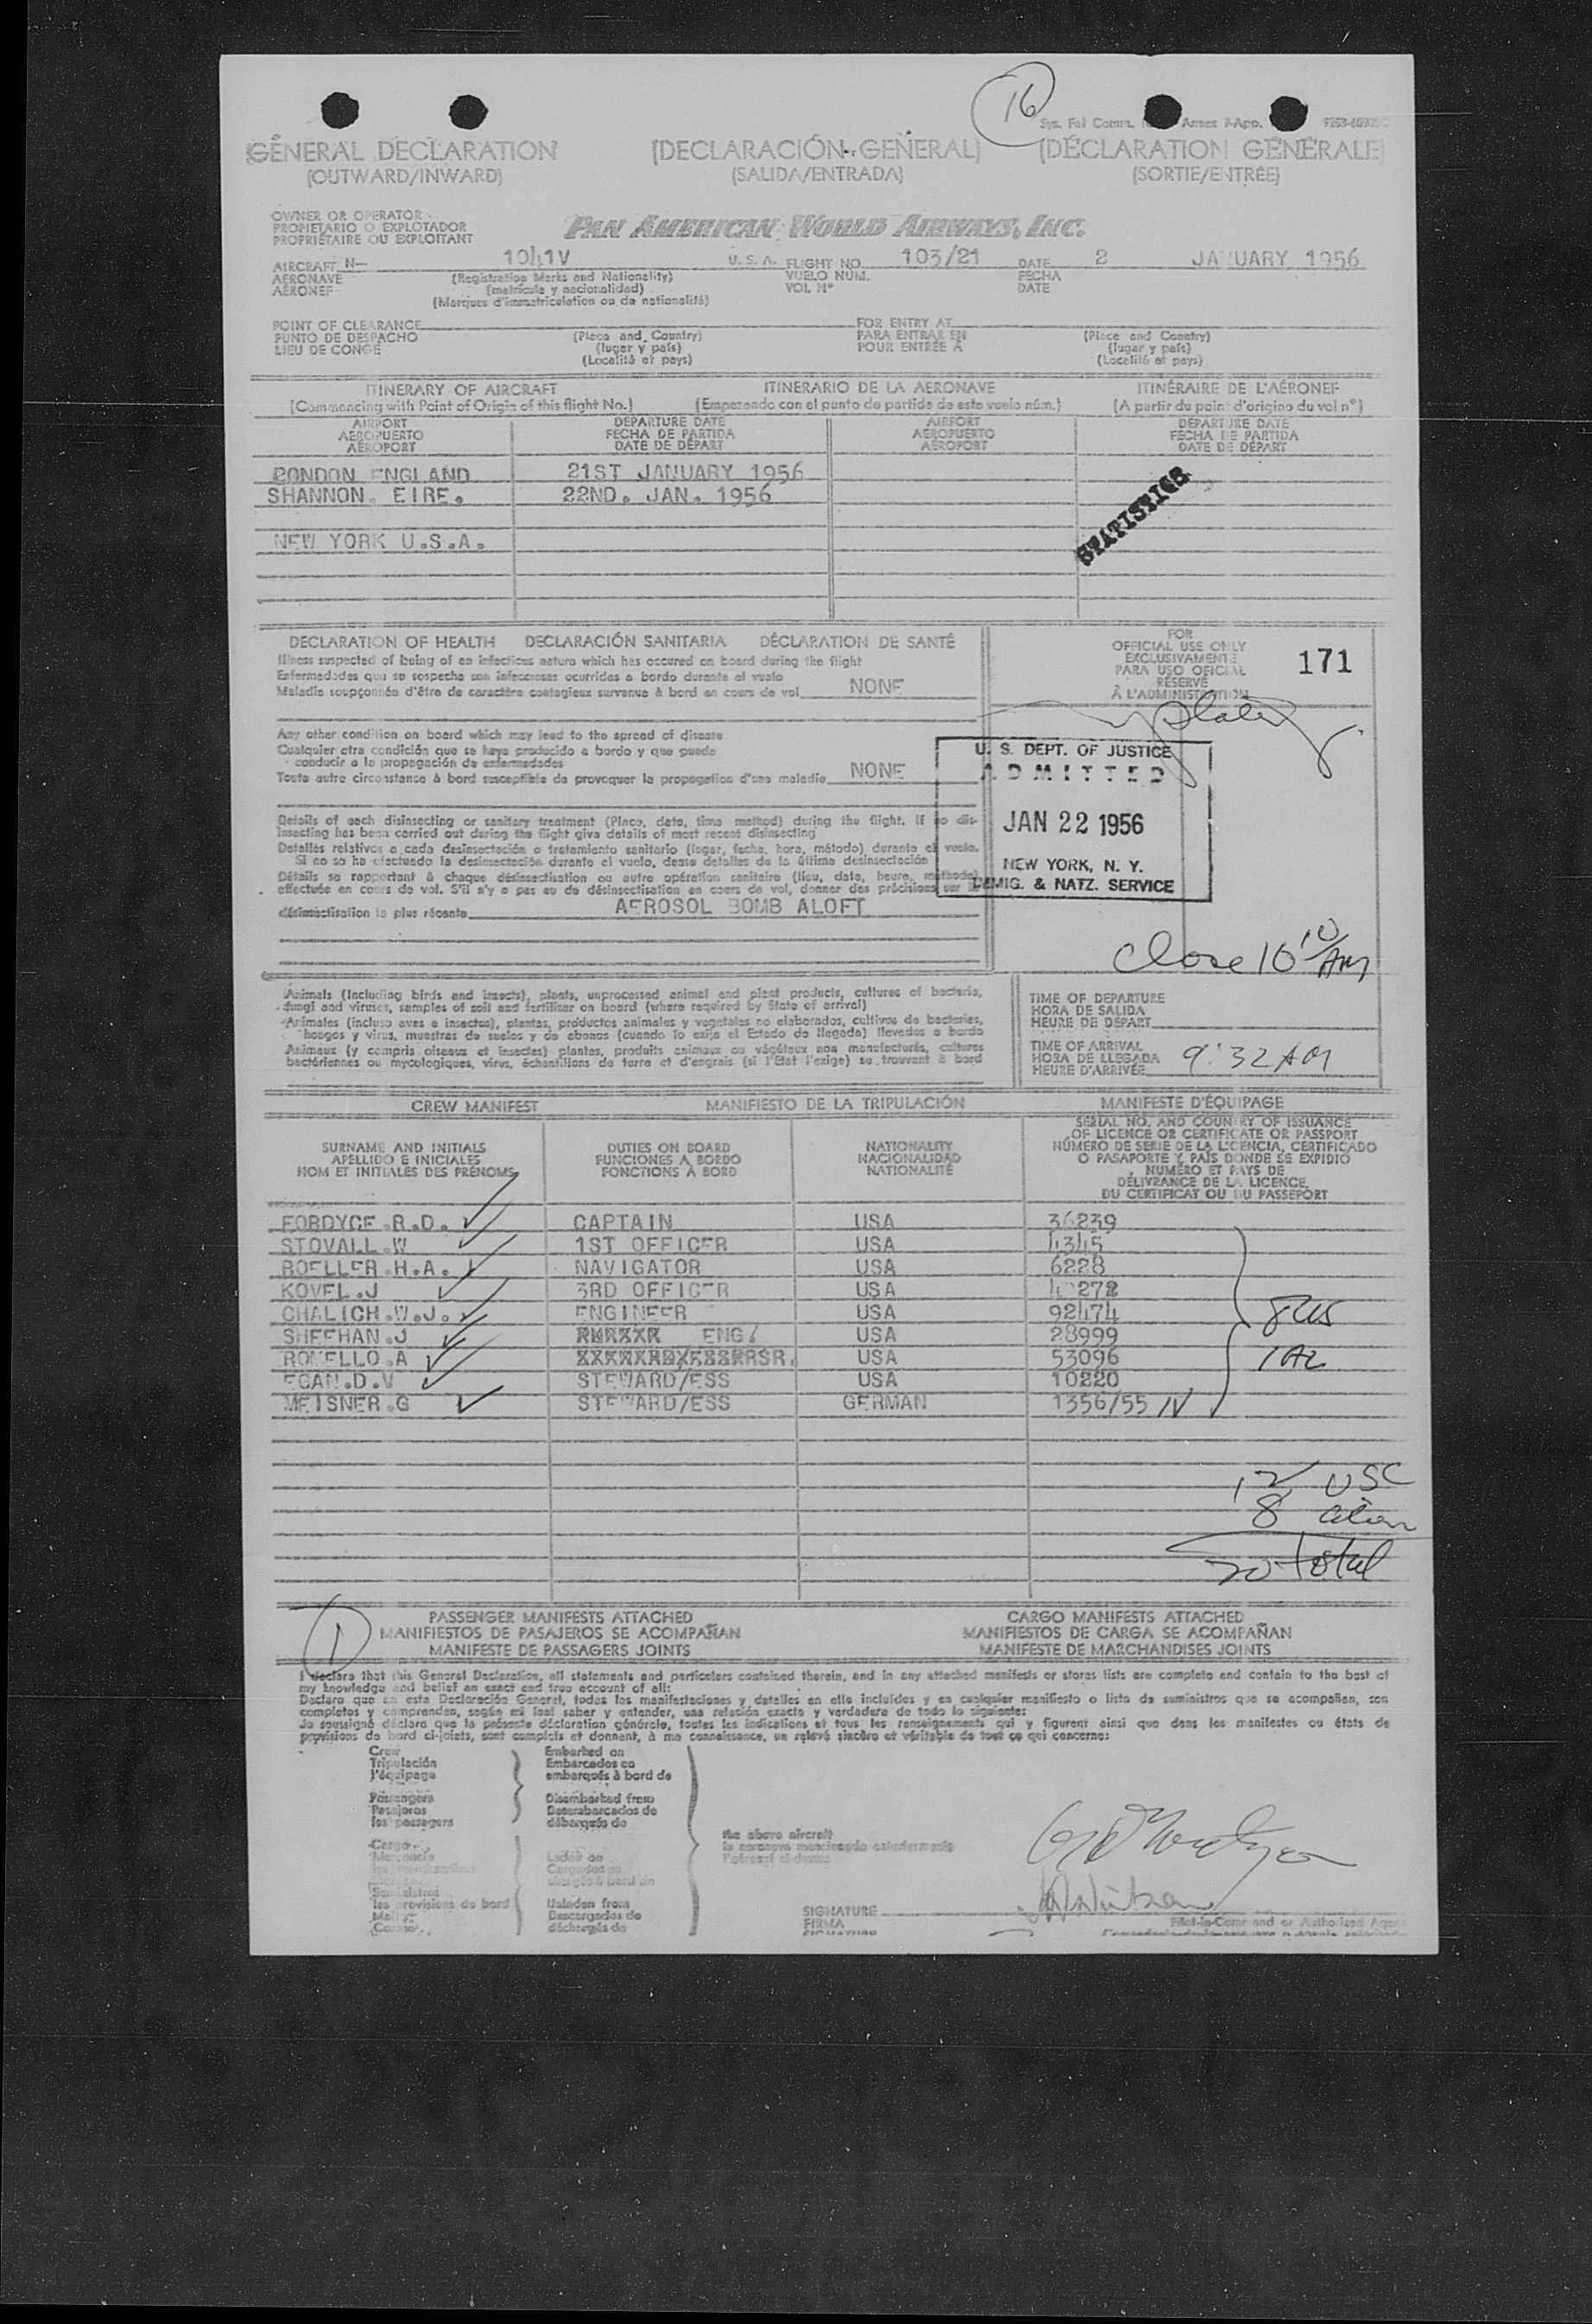 16
Annex 7-App.
GENERAL DECLARATION [DECLARACIÓN GENERAL] [DÉCLARATION GÉNÉRALE]
(OUTWARD/INWARD) (SALIDA/ENTRADA) (SORTIE/ENTRÉE)
OWNER OR OPERATOR
PROPIETARIO O EXPLOTADOR
PROPRIÉTAIRE OU EXPLOITANT
PAN AMERICAN WORLD AIRWAYS, INC.
AIRCRAFT N- 1041V U. S. A. FLIGHT NO. 103/21 DATE 2 JANUARY 1956
AERONAVE (Registration Marks and Nationality) VUELO NÚM. FECHA
AÉRONEF (matrícula y nacionalidad) VOL Nº DATE
(Marques d'immatriculation ou de nationalité)
POINT OF CLEARANCE FOR ENTRY AT
PUNTO DE DESPACHO (Place and Country) PARA ENTRAR EN (Place and Country)
LIEU DE CONGÉ (lugar y país) POUR ENTRÉE À (lugar y país)
(Localité et pays) (Localité et pays)
ITINERARY OF AIRCRAFT ITINERARIO DE LA AERONAVE ITINÉRAIRE DE L'AÉRONEF
(Commencing with Point of Origin of this flight No.) (Empezando con el punto de partida de este vuelo núm.) (A partir du point d'origine du vol nº)
AIRPORT DEPARTURE DATE AIRPORT DEPARTURE DATE
AEROPUERTO FECHA DE PARTIDA AEROPUERTO FECHA DE PARTIDA
AÉROPORT DATE DE DÉPART AÉROPORT DATE DE DÉPART
ENGLAND 21ST JANUARY 1956
SHANNON. EIRE. 22ND. JAN. 1956
STATISTICS
NEW YORK U.S.A.
DECLARATION OF HEALTH DECLARACIÓN SANITARIA DÉCLARATION DE SANTÉ
Illness suspected of being of an infectious nature which has occured on board during the flight
Enfermedades que se sospecha son infecciosas ocurridas a bordo durante el vuelo
Maladie soupçonnée d'être de caractère contagieux survenue à bord en cours de vol NONE
FOR
OFFICIAL USE ONLY
EXCLUSIVAMENTE
PARA USO OFICIAL
RÉSERVÉ
À L'ADMINISTRATION
171
Any other condition on board which may lead to the spread of disease
Cualquier otra condición que se haya producido a bordo y que puede
conducir a la propagación de enfermedades
Toute autre circonstance à bord susceptible de provoquer la propagation d'une maladie NONE
U. S. DEPT. OF JUSTICE
ADMITTED
JAN 22 1956
NEW YORK, N. Y.
IMMIG. & NATZ. SERVICE
Details of each disinsecting or sanitary treatment (Place, date, time method) during the flight. If no dis-
insecting has been carried out during the flight give details of most recent disinsecting
Detalles relativos a cada desinsectación o tratamiento sanitario (lugar, fecha, hora, método) durante el vuelo.
Si no se ha efectuado la desinsectación durante el vuelo, dense detalles de la última desinsectación
Détails se rapportant à chaque désinsectisation ou autre opération sanitaire (lieu, date, heure, méthode)
effectuée en cours de vol. S'il n'y a pas eu de désinsectisation en cours de vol, donner des précisions sur la
désinsectisation la plus récente AEROSOL BOMB ALOFT
Close 10 10 AM
Animals (Including birds and insects), plants, unprocessed animal and plant products, cultures of bacteria,
fungi and viruses, samples of soil and fertiliser on board (where required by State of arrival)
Animales (incluso aves e insectos), plantas, productos animales y vegetales no elaborados, cultivos de bacterias,
hongos y virus, muestras de suelos y de abonos (cuando lo exija el Estado de llegada) llevados a bordo
Animaux (y compris oiseaux et insectes) plantes, produits animaux ou végétaux non manufacturés, cultures
bactériennes ou mycologiques, virus, échantillons de terre et d'engrais (si l'État l'exige) se trouvant à bord
TIME OF DEPARTURE
HORA DE SALIDA
HEURE DE DÉPART
TIME OF ARRIVAL
HORA DE LLEGADA 9:32 AM
HEURE D'ARRIVÉE
CREW MANIFEST MANIFIESTO DE LA TRIPULACIÓN MANIFESTE D'ÉQUIPAGE
SURNAME AND INITIALS DUTIES ON BOARD NATIONALITY
APELLIDO E INICIALES FUNCIONES A BORDO NACIONALIDAD
NOM ET INITIALES DES PRÉNOMS FONCTIONS À BORD NATIONALITÉ
SERIAL NO. AND COUNTRY OF ISSUANCE
OF LICENCE OR CERTIFICATE OR PASSPORT
NÚMERO DE SERIE DE LA LICENCIA, CERTIFICADO
O PASAPORTE Y PAÍS DONDE SE EXPIDIÓ
NUMÉRO ET PAYS DE
DÉLIVRANCE DE LA LICENCE,
DU CERTIFICAT OU DU PASSEPORT
FORDYCE.R.D. CAPTAIN USA 36239
STOVALL.W 1ST OFFICER USA 4345
ROELLER.H.A. NAVIGATOR USA 6228
KOVEL.J 3RD OFFICER USA
CHALICH.W.J. ENGINEER USA 92474
SHEEHAN.J ENG/ USA 28999
8 US
A USA 53096
1 AL
EGAN.D.V STEWARD/ESS USA 10220
MEISNER.G STEWARD/ESS GERMAN 1356/55
12 USC
8 alien
20 total
1
PASSENGER MANIFESTS ATTACHED CARGO MANIFESTS ATTACHED
MANIFIESTOS DE PASAJEROS SE ACOMPAÑAN MANIFIESTOS DE CARGA SE ACOMPAÑAN
MANIFESTE DE PASSAGERS JOINTS MANIFESTE DE MARCHANDISES JOINTS
I declare that this General Declaration, all statements and particulars contained therein, and in any attached manifests or stores lists are complete and contain to the best of
my knowledge and belief an exact and true account of all:
Declaro que en esta Declaración General, todas las manifestaciones y detalles en ella incluídos y en cualquier manifiesto o lista de suministros que se acompañan, son
completos y comprenden, según mi leal saber y entender, una relación exacta y verdadera de todo lo siguiente:
Je soussigné déclare que la présente déclaration générale, toutes les indications et tous les renseignements qui y figurent ainsi que dans les manifestes ou états de
provisions de bord ci-joints, sont complets et donnent, à ma connaissance, un relevé sincère et véritable de tout ce qui concerne:
Crew Embarked on
Tripulación Embarcados en
l'équipage embarqués à bord de
Passengers Disembarked from
Pasajeros Desembarcados de
les passagers débarqués de
the above aircraft
Cargo Laden on
Suministros
les provisions de bord Unladen from
Descargados de
déchargés de
SIGNATURE
FIRMA
Pilot-in-Command or Authorised Agent